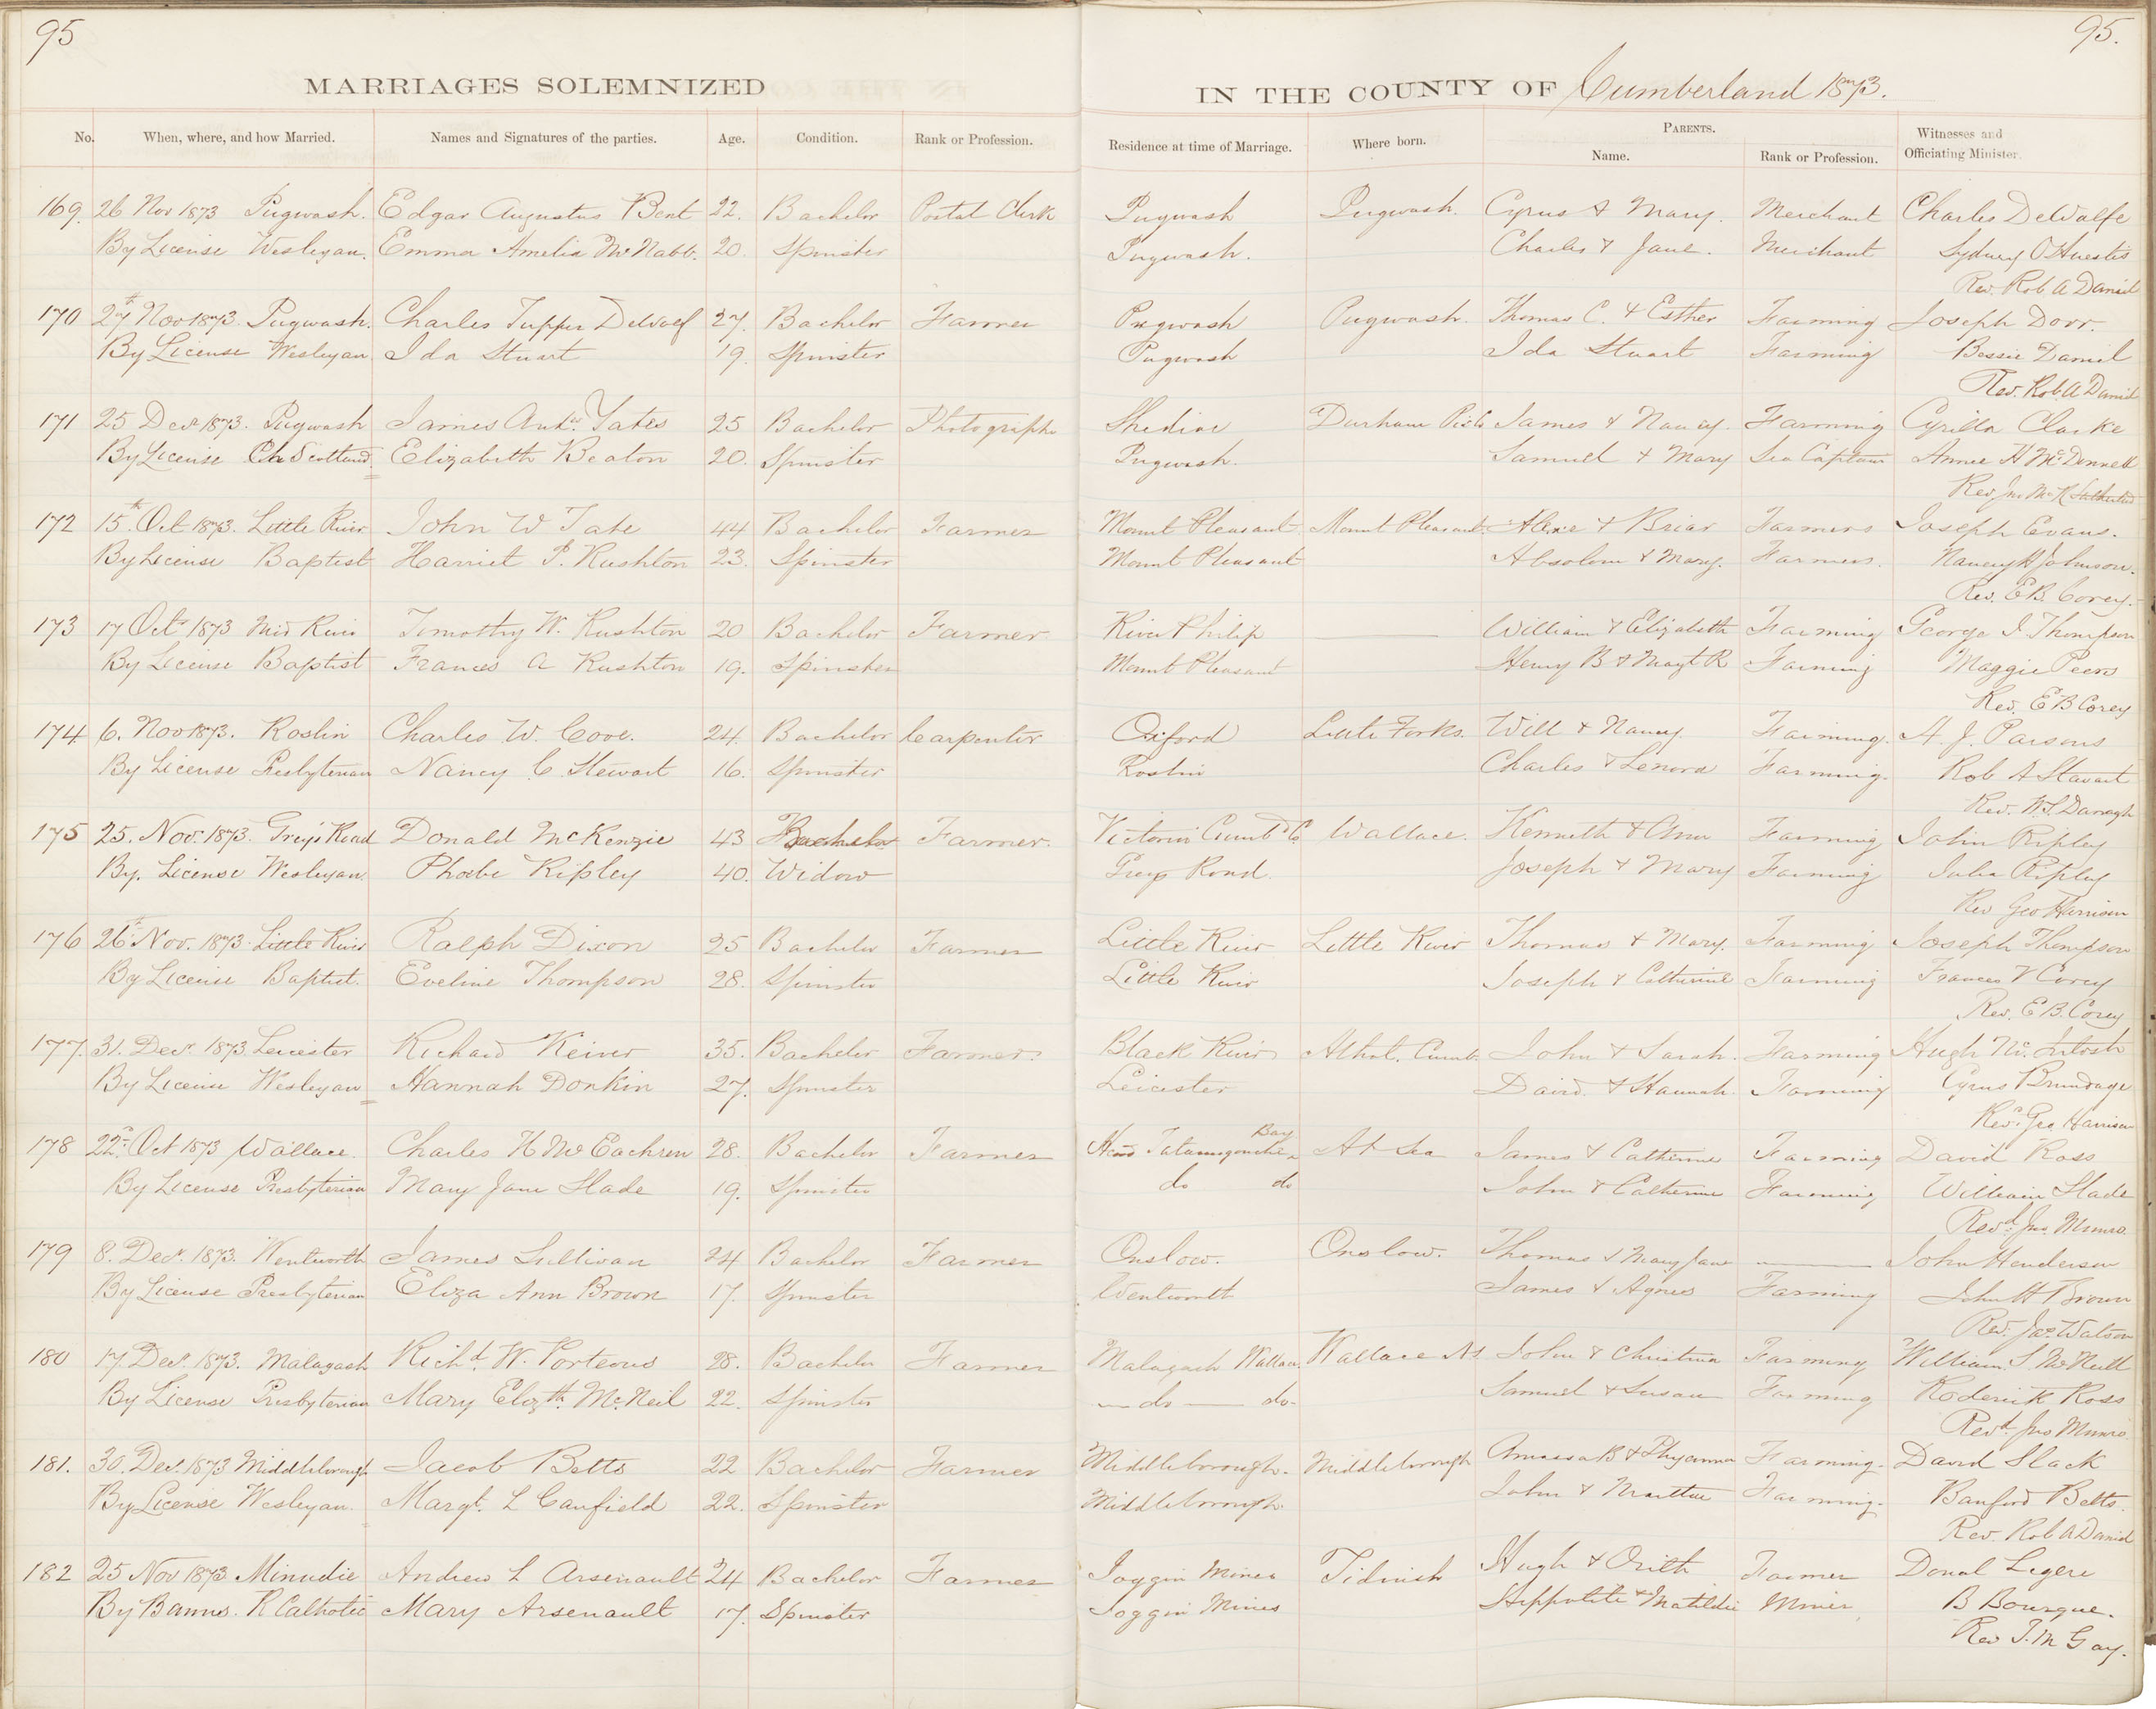 95
95.
MARRIAGES SOLEMNIZED
IN THE COUNTY OF Cumberland 1873.
No. When, where, and how Married. Names and Signatures of the parties. Age. Condition. Rank or Profession. Residence at time of Marriage. Where born. PARENTS. Name. Rank or Profession. Witnesses and Officiating Minister.
169. 26 Nov 1873 Pugwash. Edgar Augustus Bent 22. Bachelor Postal Clerk Pugwash Pugwash. Cyrus & Mary. Merchant Charles DeWolfe
By License Wesleyan. Emma Amelia McNabb. 20. Spinster Pugwash. Charles & Jane. Merchant Sydney O Huestis
Rev. Rob A Daniel
170 27th Nov 1873. Pugwash. Charles Tupper DeWolf 27. Bachelor Farmer Pugwash Pugwash. Thomas C. & Esther Farming Joseph Dorr.
By License Wesleyan Ida Stuart 19. Spinster Pugwash Ida Stuart Farming Bessie Daniel
Rev. Rob A Daniel
171 25 Decr 1873. Pugwash James Yates 25 Bachelor Photographer Shediac Durham James & Nancy. Farming Cyrilla Clarke
By License Ch Scotland. Elizabeth Beaton 20. Spinster Pugwash. Samuel & Mary Sea Captain Annie H McDonnell
Rev. Jno McK Sutherland
172 15th Oct 1873. Little River John W Tate 44 Bachelor Farmer Mount Pleasant Mount Pleasant. & Briar Farmers Joseph Evans.
By License Baptist Harriet P. Rushton 23. Spinster Mount Pleasant Absolom & Mary. Farmers. Nancy H Johnson.
Rev. E B. Corey.
173 17 Octr 1873 Mid River Timothy W. Rushton 20 Bachelor Farmer River Philip William & Elizabeth Farming George J Thompson
By License Baptist Frances A Rushton 19. Spinster Mount Pleasant Henry B & Magt R Farming Maggie Peers
Rev. E B Corey
174 6. Nov 1873. Roslin Charles W. Cove. 24. Bachelor Carpenter Oxford Little Forks. Will & Nancy. Farming. H. J. Parsons
By License Presbyterian Nancy C Stewart 16. Spinster Roslin Charles & Lenora Farming. Rob A Stewart
Rev. W. S. Darragh
175 25. Nov. 1873. Greys Road Donald McKenzie 43 Bachelor Farmer. Victoria Cumbd Co Wallace. Kenneth & Ann Farming John Ripley
By. License Wesleyan. Phoebe Ripley 40. Widow Greys Road. Joseph & Mary Farming Julia Ripley
Rev Geo Harrison
176 26th Nov. 1873. Little River Ralph Dixon 25 Bachelor Farmer Little River Little River Thomas & Mary. Farming Joseph Thompson
By License Baptist. Eveline Thompson 28. Spinster Little River Joseph & Catherine Farming Frances V Corey
Rev. E B. Corey
177. 31. Decr. 1873. Leicester Richard Keiver 35. Bachelor Farmer. Black River Athol. Cumb. John & Sarah. Farming Hugh McIntosh
By License Wesleyan Hannah Donkin 27. Spinster Leicester David & Hannah. Farming Cyrus Brundage
Revd. Geo Harrison
178 22nd Oct 1873 Wallace. Charles H McEachren 28. Bachelor Farmer Head Tatamagouche Bay At Sea James & Catherine Farming David Ross
By License Presbyterian Mary Jane Slade 19. Spinster do do John & Catherine Farming William Slade
Revd. Jno Munro.
179 8. Decr. 1873. Wentworth James Sullivan 24 Bachelor Farmer Onslow. Onslow. Thomas & Mary Jane John Henderson
By License Presbyterian Eliza Ann Brown 17. Spinster Wentworth James & Agnes Farming John H Brown
Rev. Jas. Watson
180 17. Decr. 1873. Malagash Richd. W. Porteous 28. Bachelor Farmer Malagash Wallace Wallace NS. John & Christina Farming William S. McNeill
By License Presbyterian Mary Elizth. McNeil 22. Spinster do do. Samuel & Susan Farming Roderick Ross
Revd. Jno Munro
181. 30. Decr. 1873 Middleborough Jacob Betts 22 Bachelor Farmer Middleborough. Middleborough Amasa B & Farming. David Slack
By License Wesleyan. Margt. L Canfield 22. Spinster Middleborough. John & Farming. Banford Betts.
Rev. Rob A Daniel
182 25 Nov 1873 Minudie Andrew L Arsenault 24 Bachelor Farmer Joggin Mines Tidnish Hugh & Orith Farmer Donal Legere
By Banns. R Catholic Mary Arsenault 17. Spinster Joggin Mines Hippolite & Matildie Miner B Bourque.
Rev J. M Gay.